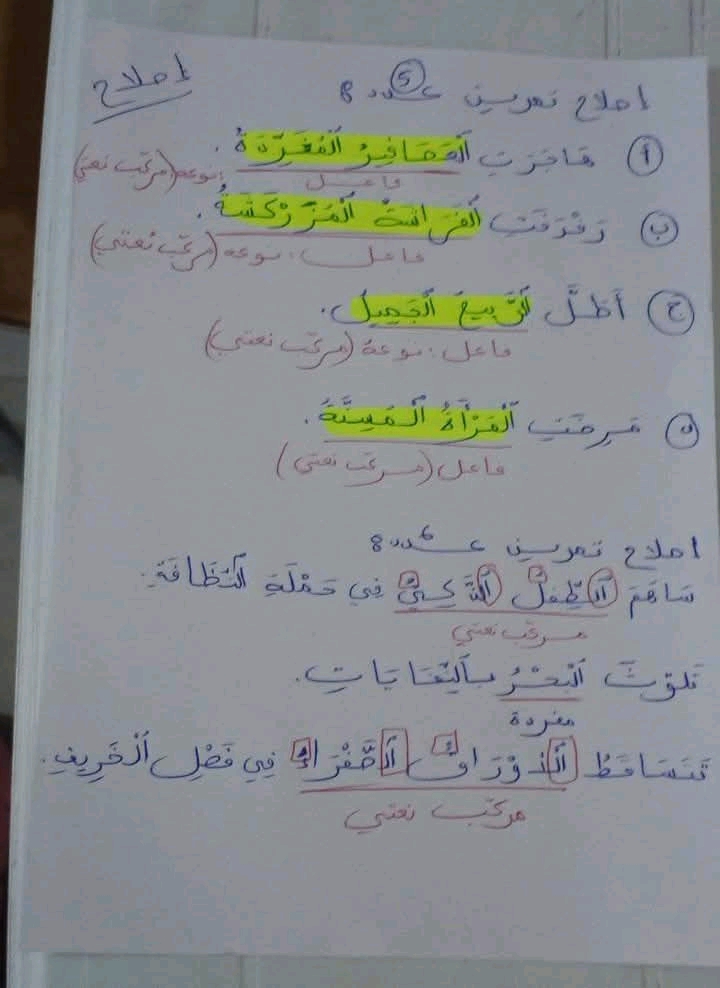 إصلاح
إصلاح تمرين 5 عدد 8
أ هَاجَرَتِ الْعَصَافِيرُ الْمُغَرِّدَةُ.
فاعل: نوعه (مركب نعتي)
ب رَفْرَفَتِ الْفَرَاشَةُ الْمُزَرْكَشَةُ.
فاعل: نوعه (مركب نعتي)
ج أَطَلَّ الرَّبِيعُ الْجَمِيلُ.
فاعل: نوعه (مركب نعتي)
د مَرِضَتِ الْمَرْأَةُ الْمُسِنَّةُ.
فاعل (مركب نعتي)
إصلاح تمرين 6 عدد 8
سَاهَمَ الطِّفْلُ الذَّكِيُّ فِي حَمْلَةِ النَّظَافَةِ.
مركب نعتي
تَلَوَّثَ الْبَحْرُ بِالنِّفَايَاتِ.
مفردة
تَتَسَاقَطُ الْأَوْرَاقُ الصَّفْرَاءُ فِي فَصْلِ الْخَرِيفِ.
مركب نعتي